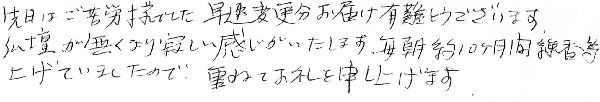 先日はご苦労様でした 早速変更分お届け有難とうでざいます
仏壇が無くなり寂しい感じがいたします 毎朝約10ヶ月間線香を
上げていましたので、重ねてお礼を申し上げます